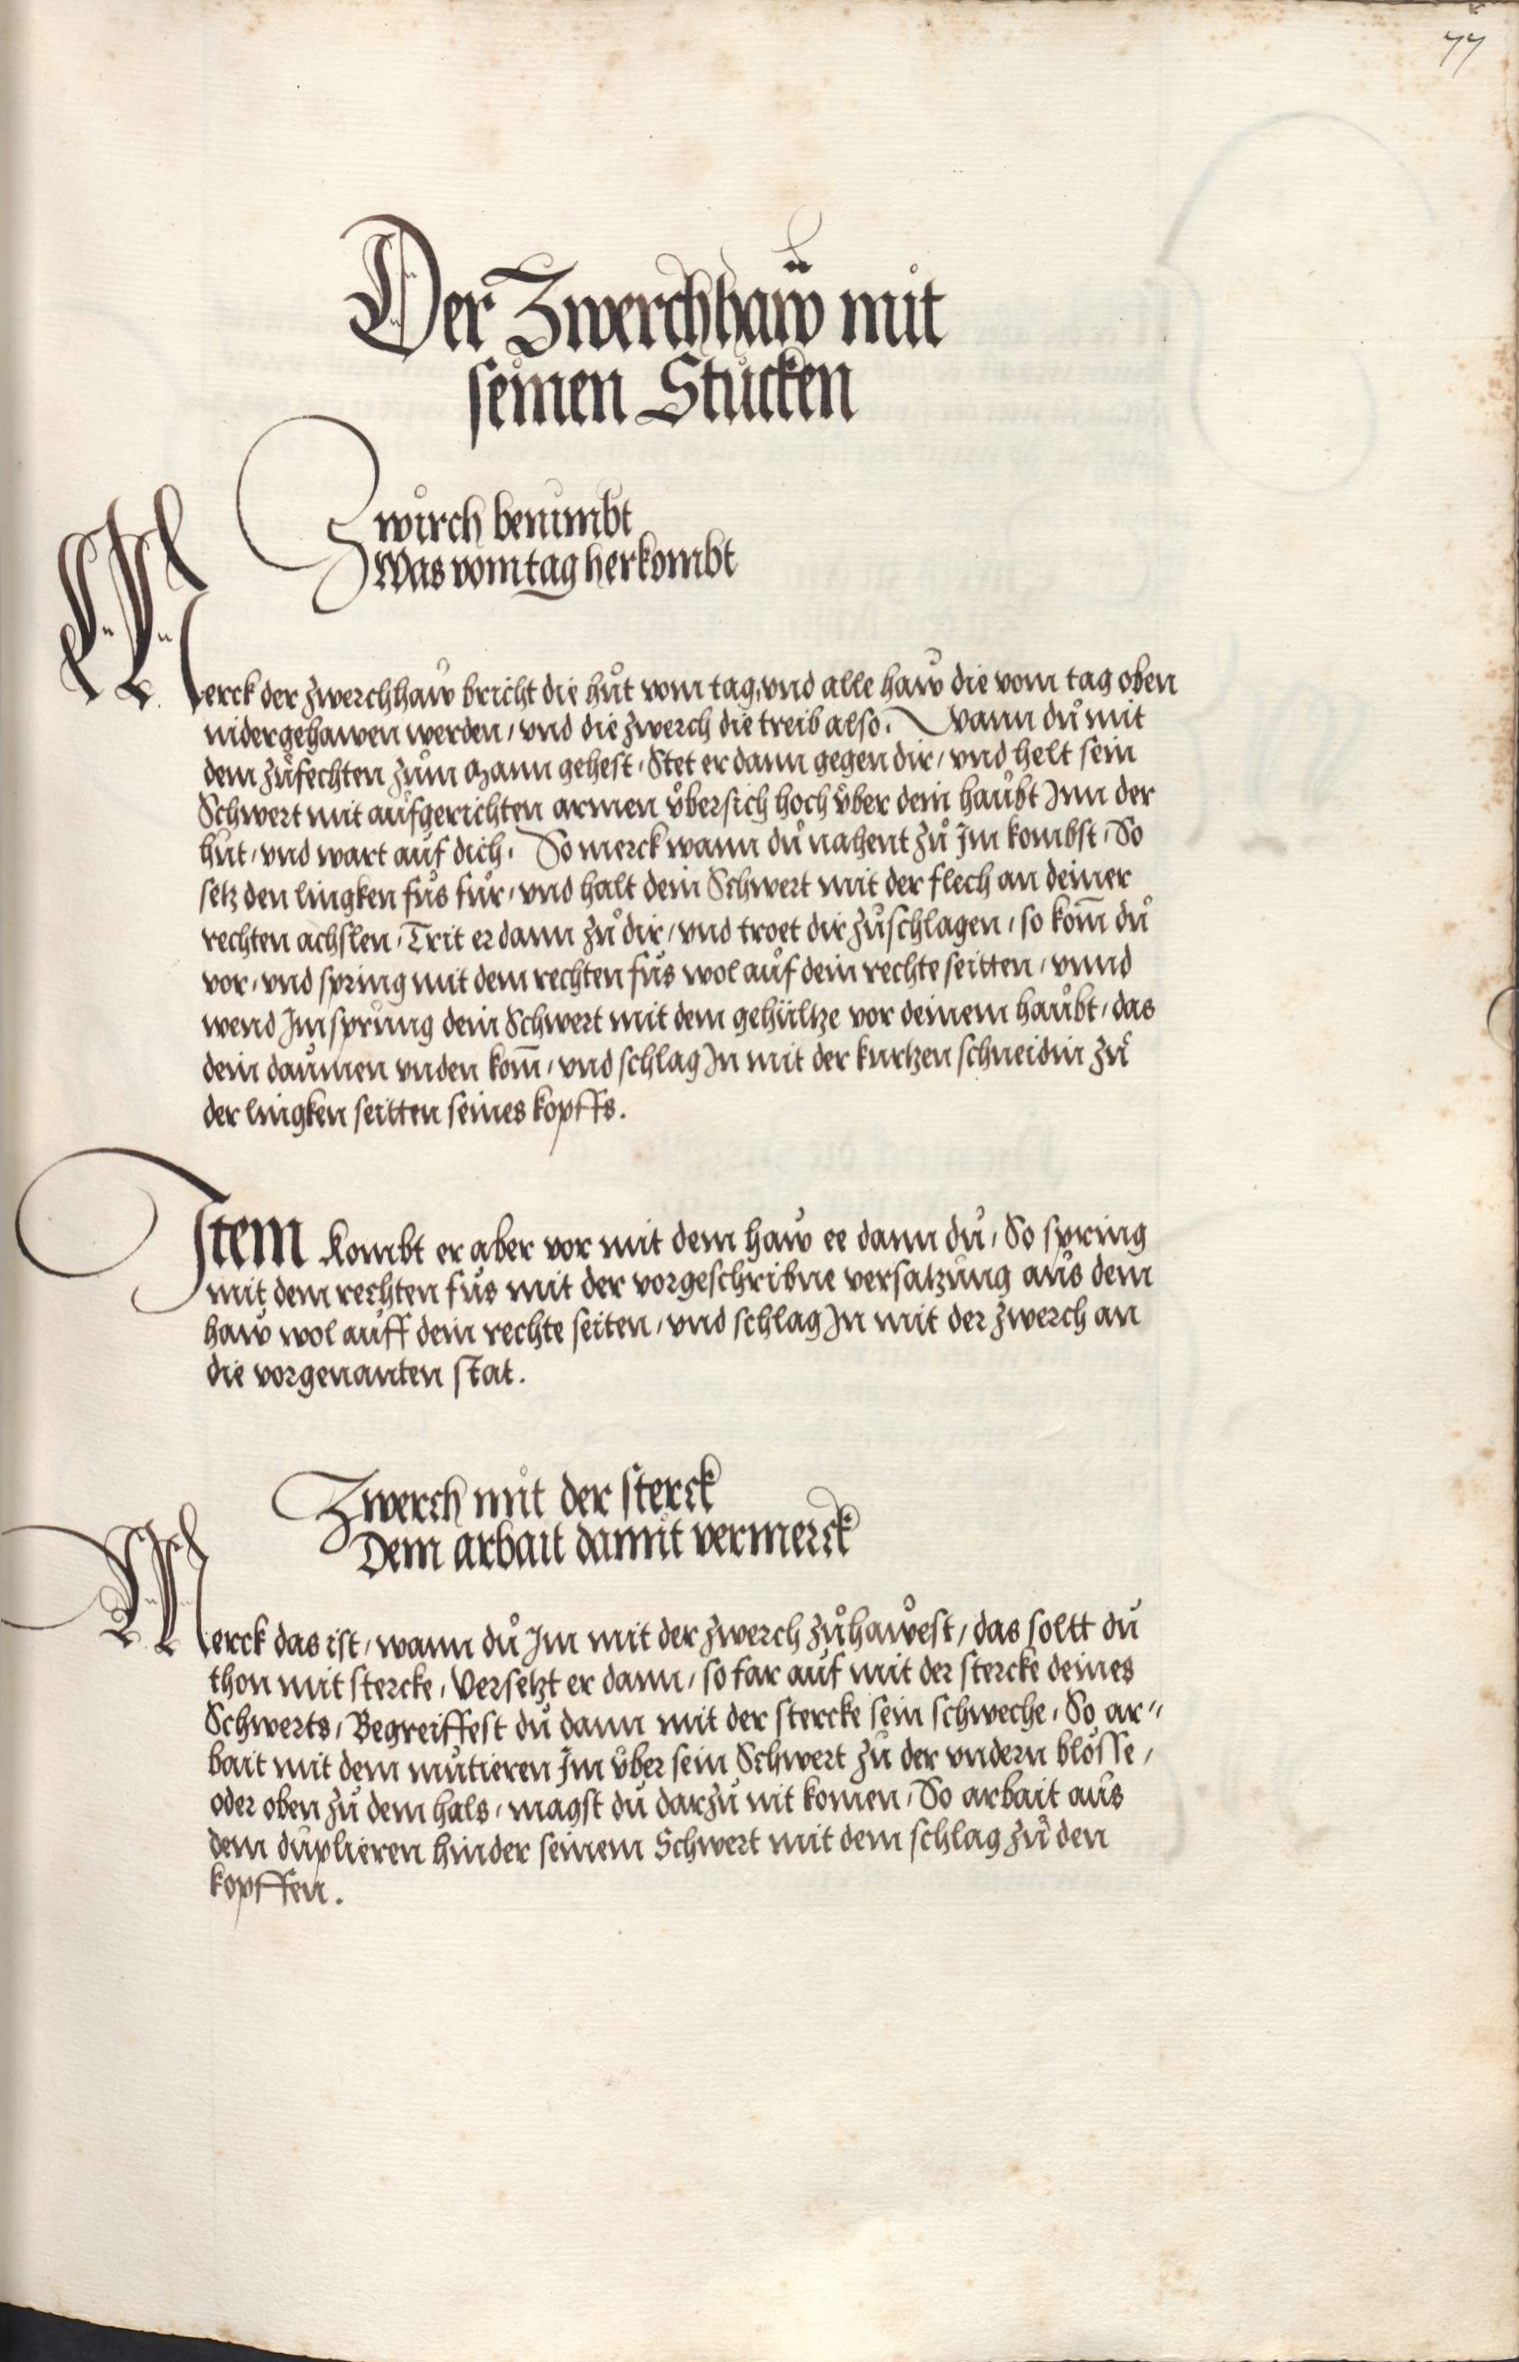 77
Der Zwerchhaw mit
seinen Stucken
Zwirch benimbt
Was vom tag herkombt
Merck der zwerchhaw bricht die hůt vom tag, vnd alle haw die vom tag oben
nidergehawen werden / vnd die zwerch die treib also. Wann dů mit
dem zůfechten zům Mann gehest / Stet er dann gegen dir / vnd helt sein
Schwert mit aufgerichten armen vbersich hoch vber dein haubt Inn der
hůt / vnd wart auf dich. So merck wann dů nahent zů Im kombst / So
setz den lingken fůs fůr / vnd halt dein Schwert mit der flech an deiner
rechten achslen / Trit er dann zů dir / vnd troet dir zůschlagen / so kom̄ dů
vor / vnd spring mit dem rechten fůs wol auf dein rechte seitten / vnnd
wend Im sprůng dein Schwert mit dem gehültze vor deinem haubt / das
dein daumen vnden kom̄ / vnd schlag In mit der kurtzen schneidin zů
der lingken seitten seines kopffs.
Item Kombt er aber vor mit dem haw ee dann dů / So spring
mit dem rechten fůs mit der vorgeschribne versatzůng aus dem
haw wol auff dein rechte seiten / vnd schlag In mit der zwerch an
die vorgenanten stat.
Zwerch mit der sterck
Dein arbait damit vermerck
Merck das ist / wann dů Im mit der zwerch zůhawest / das soltt dů
thon mit stercke / Versetzt er dann / so far auf mit der stercke deines
Schwerts / Begreiffest dů dann mit der stercke sein schweche / So ar〃
bait mit dem mutieren Im vber sein Schwert zů der vndern blösse /
oder oben zů dem hals / magst dů darzů nit komen / So arbait aus
dem duplieren hinder seinem Schwert mit dem schlag zů den
kopffen.